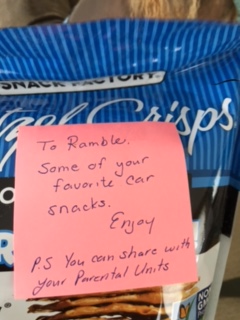 SNACK FACTORY
zel Crisps
To Ramble.
Some of your
favorite car
snacks.
Enjoy
P.S You can share with
your Parental Units
NON
GMO